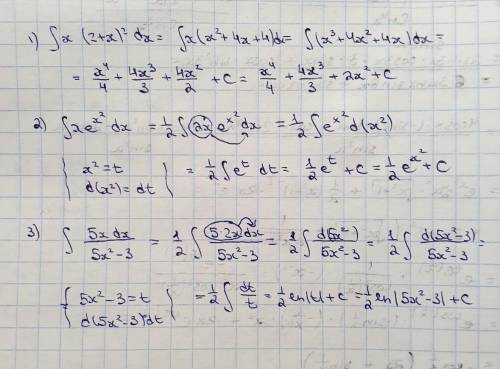 1) ∫x (2+x)² dx = ∫x(x²+4x+4)dx = ∫(x³+4x²+4x)dx =
= x⁴/4 + 4x³/3 + 4x²/2 + c = x⁴/4 + 4x³/3 + 2x² + c
2) ∫xe^(x²) dx = 1/2 ∫ 2x e^(x²) dx = 1/2 ∫e^(x²) d(x²)
{ x² = t
d(x²) = dt } = 1/2 ∫e^t dt = 1/2 e^t + c = 1/2 e^(x²) + c
3) ∫ 5x dx/(5x²-3) = 1/2 ∫ 5·2x dx/(5x²-3) = 1/2 ∫ d(5x²)/(5x²-3) = 1/2 ∫ d(5x²-3)/(5x²-3) =
{ 5x²-3 = t
d(5x²-3) dt } = 1/2 ∫ dt/t = 1/2 ln|t| + c = 1/2 ln|5x²-3| + c